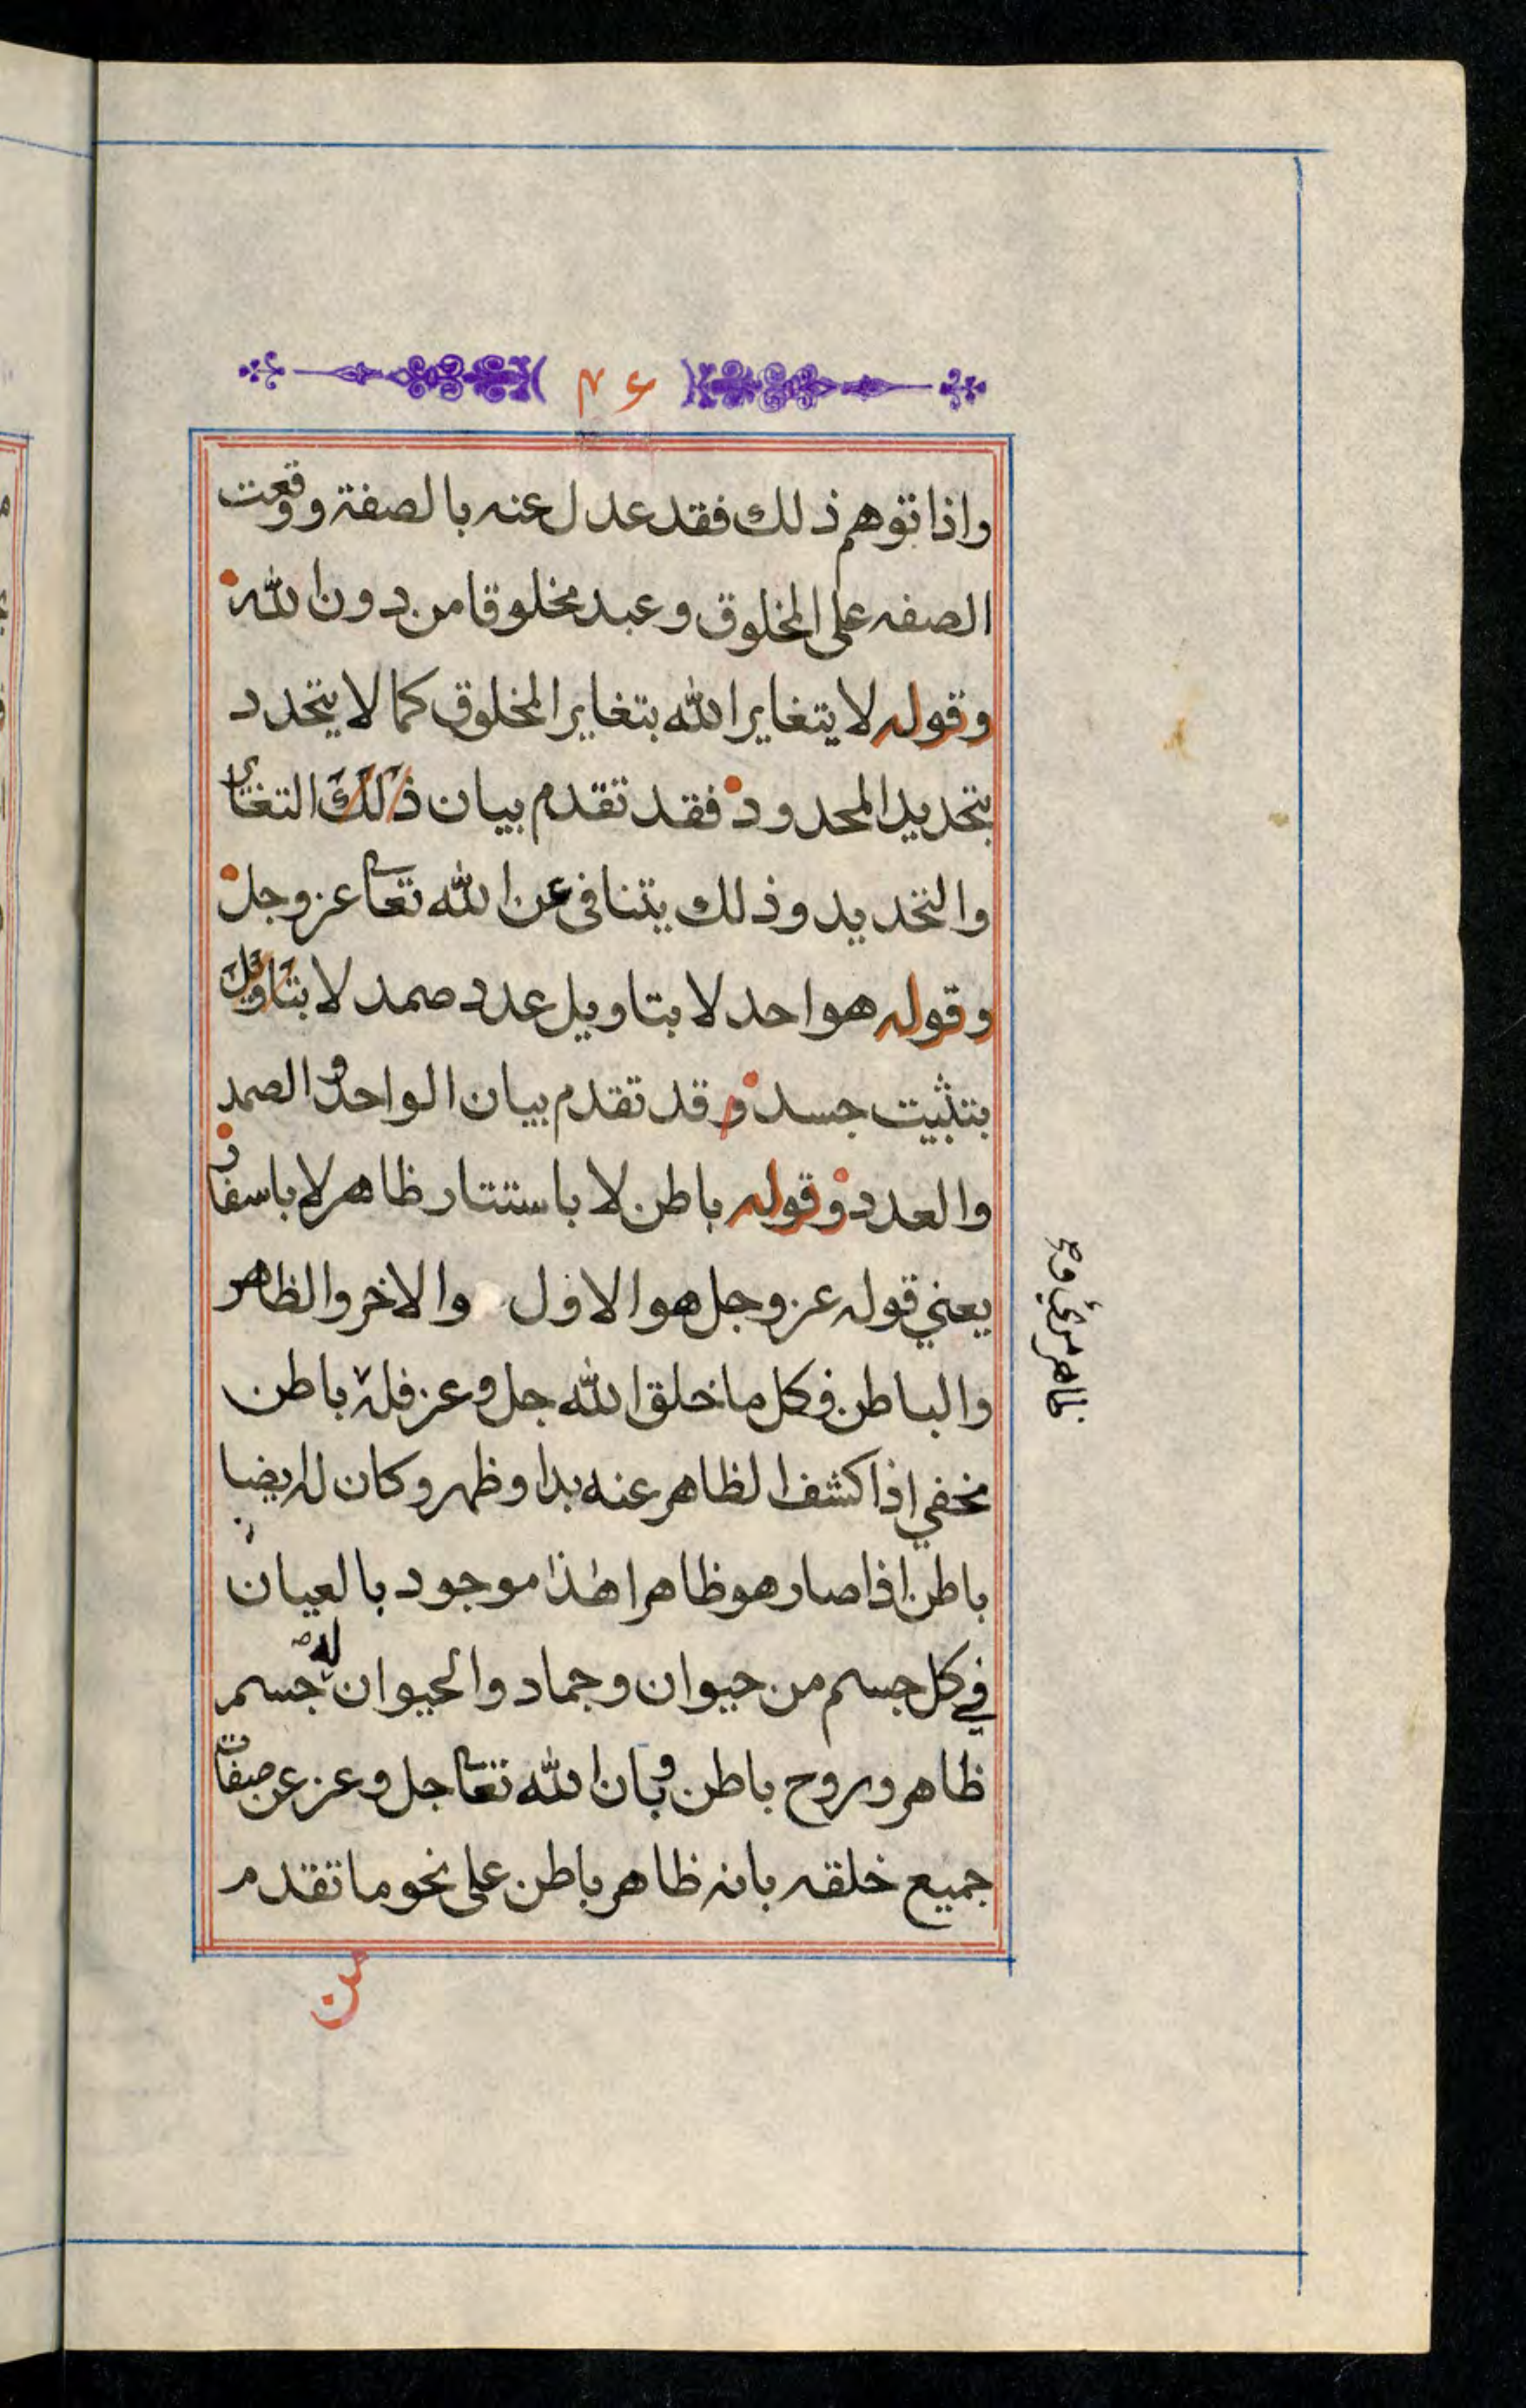 ٤٦
واذا توهم ذلك فقد عدل عنه بالصفة ووقعت
الصفه على المخلوق وعبد مخلوقا من دون الله
وقوله لا يتغاير الله بتغاير المخلوق كما لا يتحدد
بتحديد المحدود فقد تقدم بيان ذلك التغاير
والتحديد وذلك يتنافى عن الله تعا عز وجل
وقوله هو احد لا بتاويل عدد صمد لا بتاويل
بتثبيت جسد وقد تقدم بيان الواحد والصمد
والعدد وقوله باطن لا باستتار ظاهر لا باسفار
يعني قوله عز وجل هو الاول والاخر والظاهر
والباطن فكل ما خلق الله جل وعز فله باطن
مخفي اذا كشف الظاهر عنه بدا وظهر وكان له ايضا
باطن اذا صار هو ظاهرا هذا موجود بالعيان
في كل جسم من حيوان وجماد والحيوان له جسم
ظاهر وروح باطن وبان الله تعا جل وعز عن صفات
جميع خلقه بانه ظاهر باطن على نحو ما تقدم
من